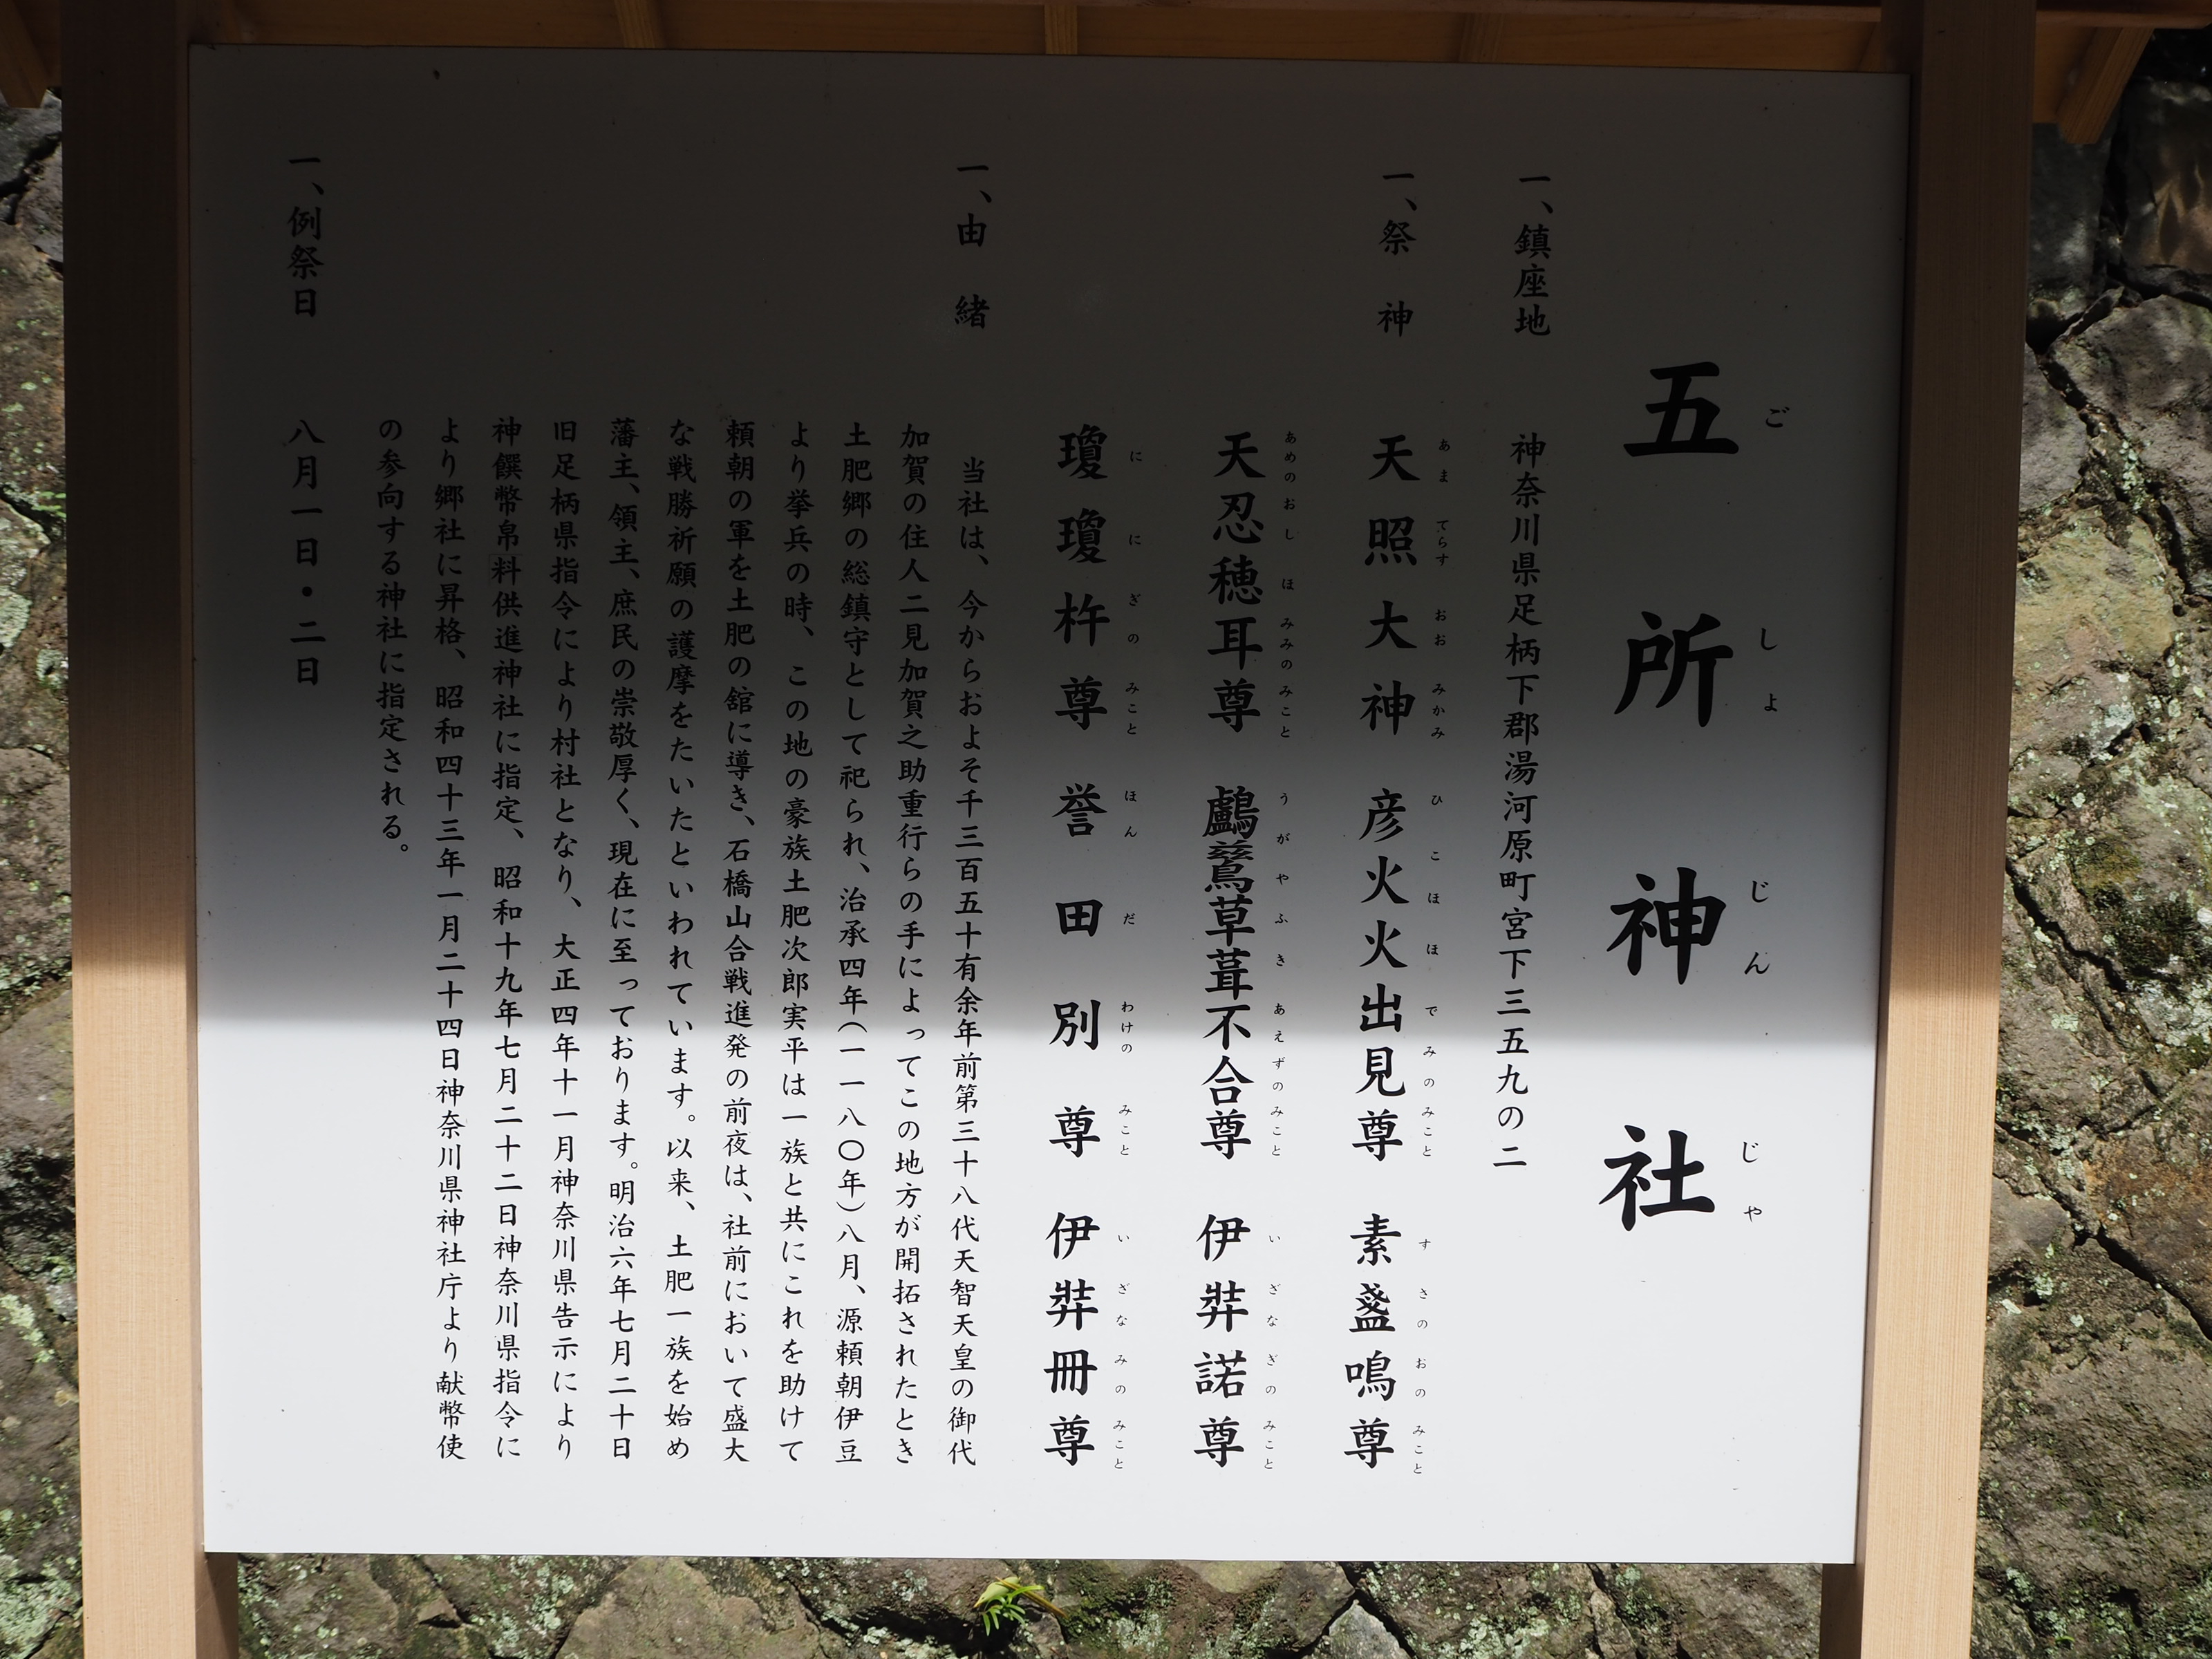 五所神社
ごしょじんじゃ
一、鎮座地　神奈川県足柄下郡湯河原町宮下三五九の二
一、祭　神　天照大神　彦火火出見尊　素盞鳴尊
あまてらすおおみかみ　ひこほほでみのみこと　すさのおのみこと
天忍穂耳尊　鸕鶿草葺不合尊　伊弉諾尊
あめのおしほみみのみこと　うがやふきあえずのみこと　いざなぎのみこと
瓊瓊杵尊　誉田別尊　伊弉冊尊
ににぎのみこと　ほんだわけのみこと　いざなみのみこと
一、由　緒
当社は、今からおよそ千三百五十有余年前第三十八代天智天皇の御代
加賀の住人二見加賀之助重行らの手によってこの地方が開拓されたとき
土肥郷の総鎮守として祀られ、治承四年（一一八〇年）八月、源頼朝伊豆
より挙兵の時、この地の豪族土肥次郎実平は一族と共にこれを助けて
頼朝の軍を土肥の舘に導き、石橋山合戦進発の前夜は、社前において盛大
な戦勝祈願の護摩をたいたといわれています。以来、土肥一族を始め
藩主、領主、庶民の崇敬厚く、現在に至っております。明治六年七月二十日
旧足柄県指令により村社となり、大正四年十一月神奈川県告示により
神饌幣帛料供進神社に指定、昭和十九年七月二十二日神奈川県指令に
より郷社に昇格、昭和四十三年一月二十四日神奈川県神社庁より献幣使
の参向する神社に指定される。
一、例祭日　八月一日・二日